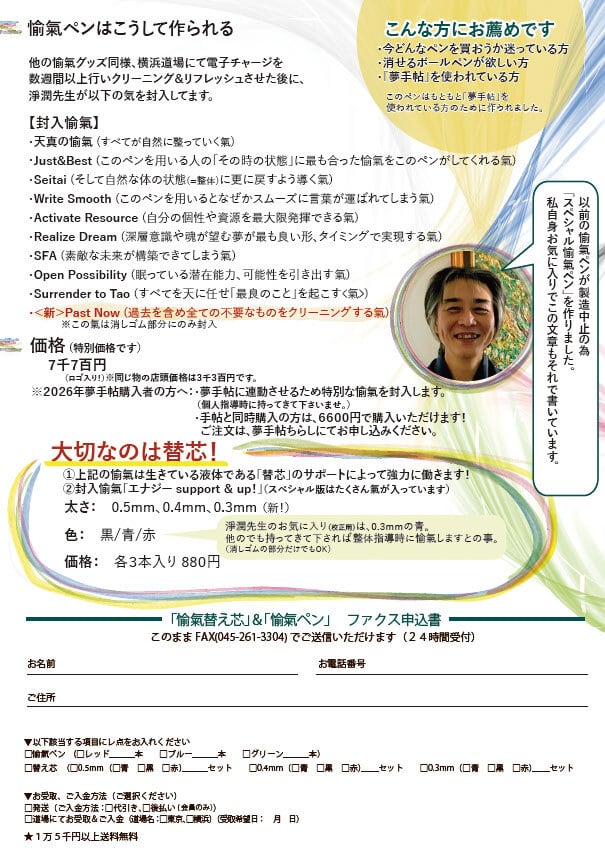 愉氣ペンはこうして作られる
他の愉氣グッズ同様、横浜道場にて電子チャージを
数週間以上行いクリーニング&リフレッシュさせた後に、
淨潤先生が以下の気を封入してます。
【封入愉氣】
・天真の愉氣（すべてが自然に整っていく氣）
・Just&Best（このペンを用いる人の「その時の状態」に最も合った愉氣をこのペンがしてくれる氣）
・Seitai（そして自然な体の状態(=整体)に更に戻すよう導く氣）
・Write Smooth（このペンを用いるとなぜかスムーズに言葉が運ばれてしまう氣）
・Activate Resource（自分の個性や資源を最大限発揮できる氣）
・Realize Dream（深層意識や魂が望む夢が最も良い形、タイミングで実現する氣）
・SFA（素敵な未来が構築できてしまう氣）
・Open Possibility（眠っている潜在能力、可能性を引き出す氣）
・Surrender to Tao（すべてを天に任せ「最良のこと」を起こす<氣>）
・<新>Past Now（過去を含め全ての不要なものをクリーニングする氣）
※この氣は消しゴム部分にのみ封入
こんな方にお薦めです
・今どんなペンを買おうか迷っている方
・消せるボールペンが欲しい方
・『夢手帖』を使われている方
このペンはもともと「夢手帖」を
使われている方のために作られました。
以前の愉氣ペンが製造中止の為
「スペシャル愉氣ペン」を作りました。
私自身お気に入りでこの文章もそれで書いています。
価格（特別価格です）
7千7百円
（ロゴ入り！）※同じ物の店頭価格は3千3百円です。
※2026年夢手帖購入者の方へ：・夢手帖に連動させるため特別な愉氣を封入します。
（個人指導時に持ってきて下さいませ。）
・手帖と同時購入の方は、6600円で購入いただけます！
ご注文は、夢手帖ちらしにてお申し込みください。
大切なのは替芯！
①上記の愉氣は生きている液体である「替芯」のサポートによって強力に働きます！
②封入愉氣「エナジー support & up！」（スペシャル版はたくさん氣が入っています）
太さ： 0.5mm、0.4mm、0.3mm（新！）
色： 黒/青/赤
淨潤先生のお気に入り(校正用)は、0.3mmの青。
他のでも持ってきて下されば整体指導時に愉氣しますとの事。
（消しゴムの部分だけでもOK）
価格： 各3本入り 880円
「愉氣替え芯」&「愉氣ペン」 ファクス申込書
このまま FAX(045-261-3304)でご送信いただけます（24時間受付）
お名前
お電話番号
ご住所
▼以下該当する項目にレ点をお入れください
□愉氣ペン （□レッド_____本 □ブルー_____本 □グリーン_____本）
□替え芯 （□0.5mm（□青 □黒 □赤）_____セット □0.4mm（□青 □黒 □赤）____セット □0.3mm（□青 □黒 □赤）____セット
▼お受取、ご入金方法（ご選択ください）
□発送（ご入金方法：□代引き、□後払い（会員のみ））
□道場にてお受取&ご入金（道場名：□東京、□横浜）（受取希望日： 月 日）
★1万5千円以上送料無料